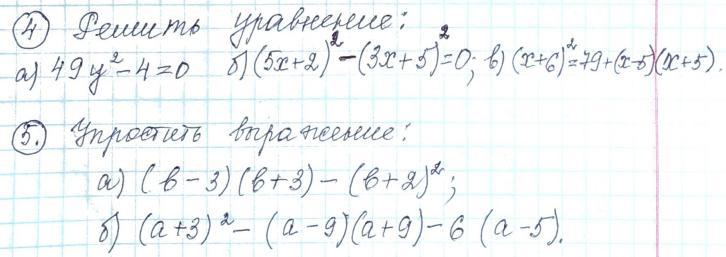 ④ Решить уравнение:
а) 49y²-4=0 б) (5x+2)²-(3x+5)²=0; в) (x+6)²=79+(x-5)(x+5).
⑤. Упростить выражение:
а) (в-3)(в+3)-(в+2)²;
б) (a+3)²-(a-9)(a+9)-6(a-5).